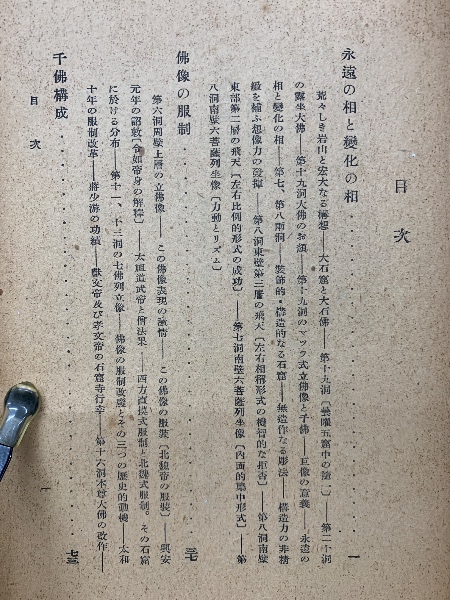 目次
永遠の相と變化の相‥‥‥‥‥‥‥‥一
荒々しき岩山と宏大なる構想——大石窟と大石佛——第十九洞〔曇曜五窟中の隨一〕——第二十洞
の露坐大佛——第十九洞大佛のお顏——第十九洞のマツラ式立佛像と千佛——巨像の意義——永遠の
相と變化の相——第七、第八兩洞——裝飾的・構造的なる石窟——無造作なる彫法——構造力の非精
緻を補ふ想像力の發揮——第八洞東壁第三層の飛天〔左右相稱形式の機智的な拒否〕——第八洞南壁
東部第二層の飛天〔左右比例的形式の成功〕——第七洞南壁六菩薩列坐像〔內面的集中形式〕——第
八洞南壁六菩薩列坐像〔力動とリズム〕
佛像の服制‥‥‥‥‥‥‥‥三七
第六洞周壁上層の立佛像——この佛像表現の激情——この佛像の服裝〔北魏帝の服裝〕——興安
元年の詔敕〔令如帝身の解釋〕——太祖道武帝と僧法果——西方直摸式服制と北魏式服制。その石窟
に於ける分布——第十一、十三洞の七佛列立像——佛像の服制改變とその三つの歷史的動機——太和
十年の服制改革——蔣少游の功績——獻文帝及び孝文帝の石窟寺行幸——第十六洞本尊大佛の改作——
千佛構成‥‥‥‥‥‥‥‥七三
目次
一